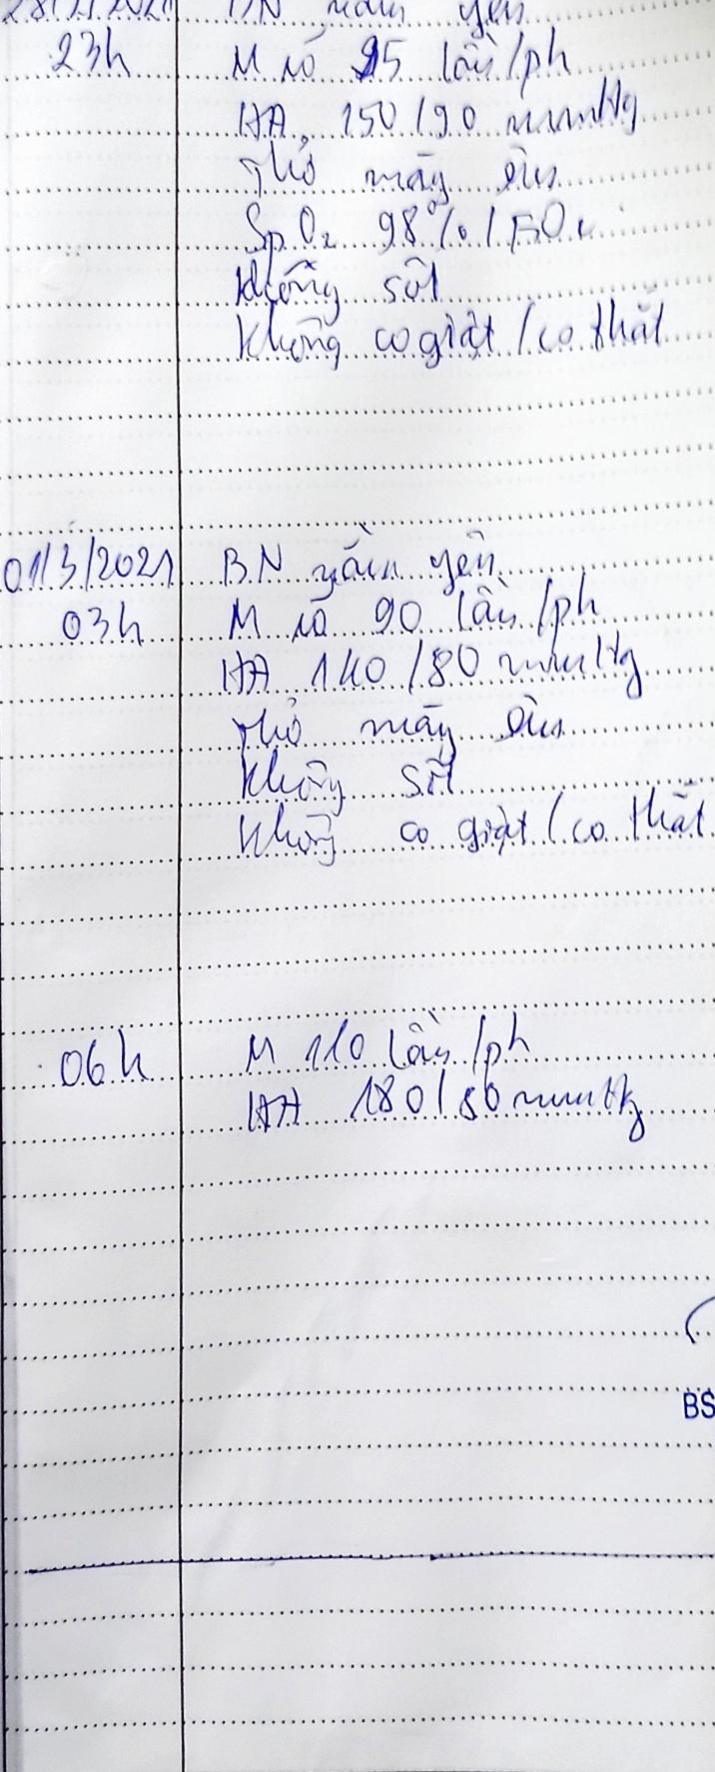 28/2/2021 BN nằm yên
23h M rõ 95 lần/ph
HA 150/90 mmHg
Thở máy êm
SpO2 98%/
Không sốt
Không co giật/co thắt
01/3/2021 BN nằm yên
03h M rõ 90 lần/ph
HA 140/80 mmHg
Thở máy êm
Không sốt
Không co giật/co thắt
06h M 110 lần/ph
HA 180/80 mmHg
BS